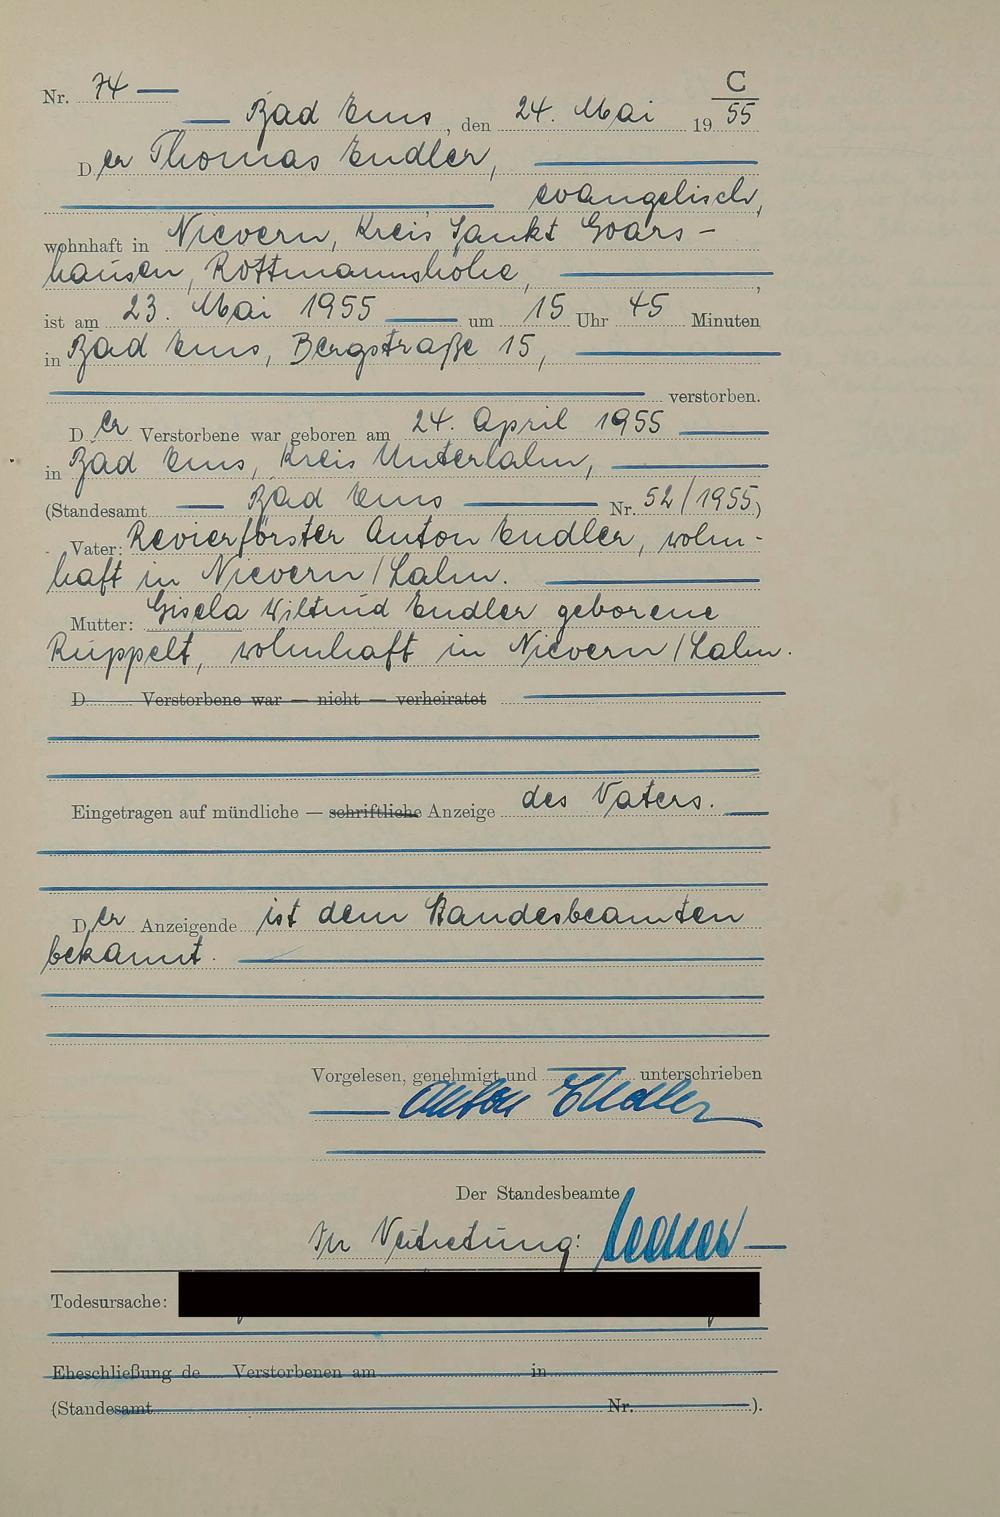 C
Nr. 74
Bad Ems, den 24. Mai 1955
Der Thomas Endler,
evangelisch,
wohnhaft in Nievern, Kreis Sankt Goars-
hausen, Rottmannshöhe,
ist am 23. Mai 1955 um 15 Uhr 45 Minuten
in Bad Ems, Bergstraße 15,
verstorben.
Der Verstorbene war geboren am 24. April 1955
in Bad Ems, Kreis Unterlahn,
(Standesamt Bad Ems Nr. 52/1955)
Vater: Revierförster Anton Endler, wohn-
haft in Nievern/Lahn.
Mutter: Gisela Wiltrud Endler geborene
Ruppelt, wohnhaft in Nievern/Lahn.
D Verstorbene war — nicht — verheiratet
Eingetragen auf mündliche — schriftliche Anzeige des Vaters.
Der Anzeigende ist dem Standesbeamten
bekannt.
Vorgelesen, genehmigt und unterschrieben
Anton Endler
Der Standesbeamte
In Vertretung:
Todesursache:
Eheschließung de Verstorbenen am in
(Standesamt Nr. ).